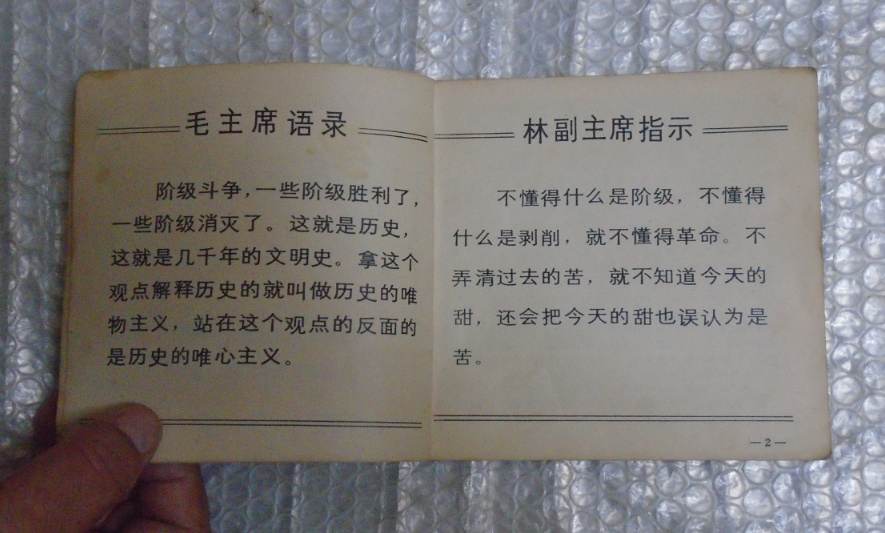 毛主席语录
阶级斗争,一些阶级胜利了,
一些阶级消灭了。这就是历史,
这就是几千年的文明史。拿这个
观点解释历史的就叫做历史的唯
物主义,站在这个观点的反面的
是历史的唯心主义。
林副主席指示
不懂得什么是阶级,不懂得
什么是剥削,就不懂得革命。不
弄清过去的苦,就不知道今天的
甜,还会把今天的甜也误认为是
苦。
—2—